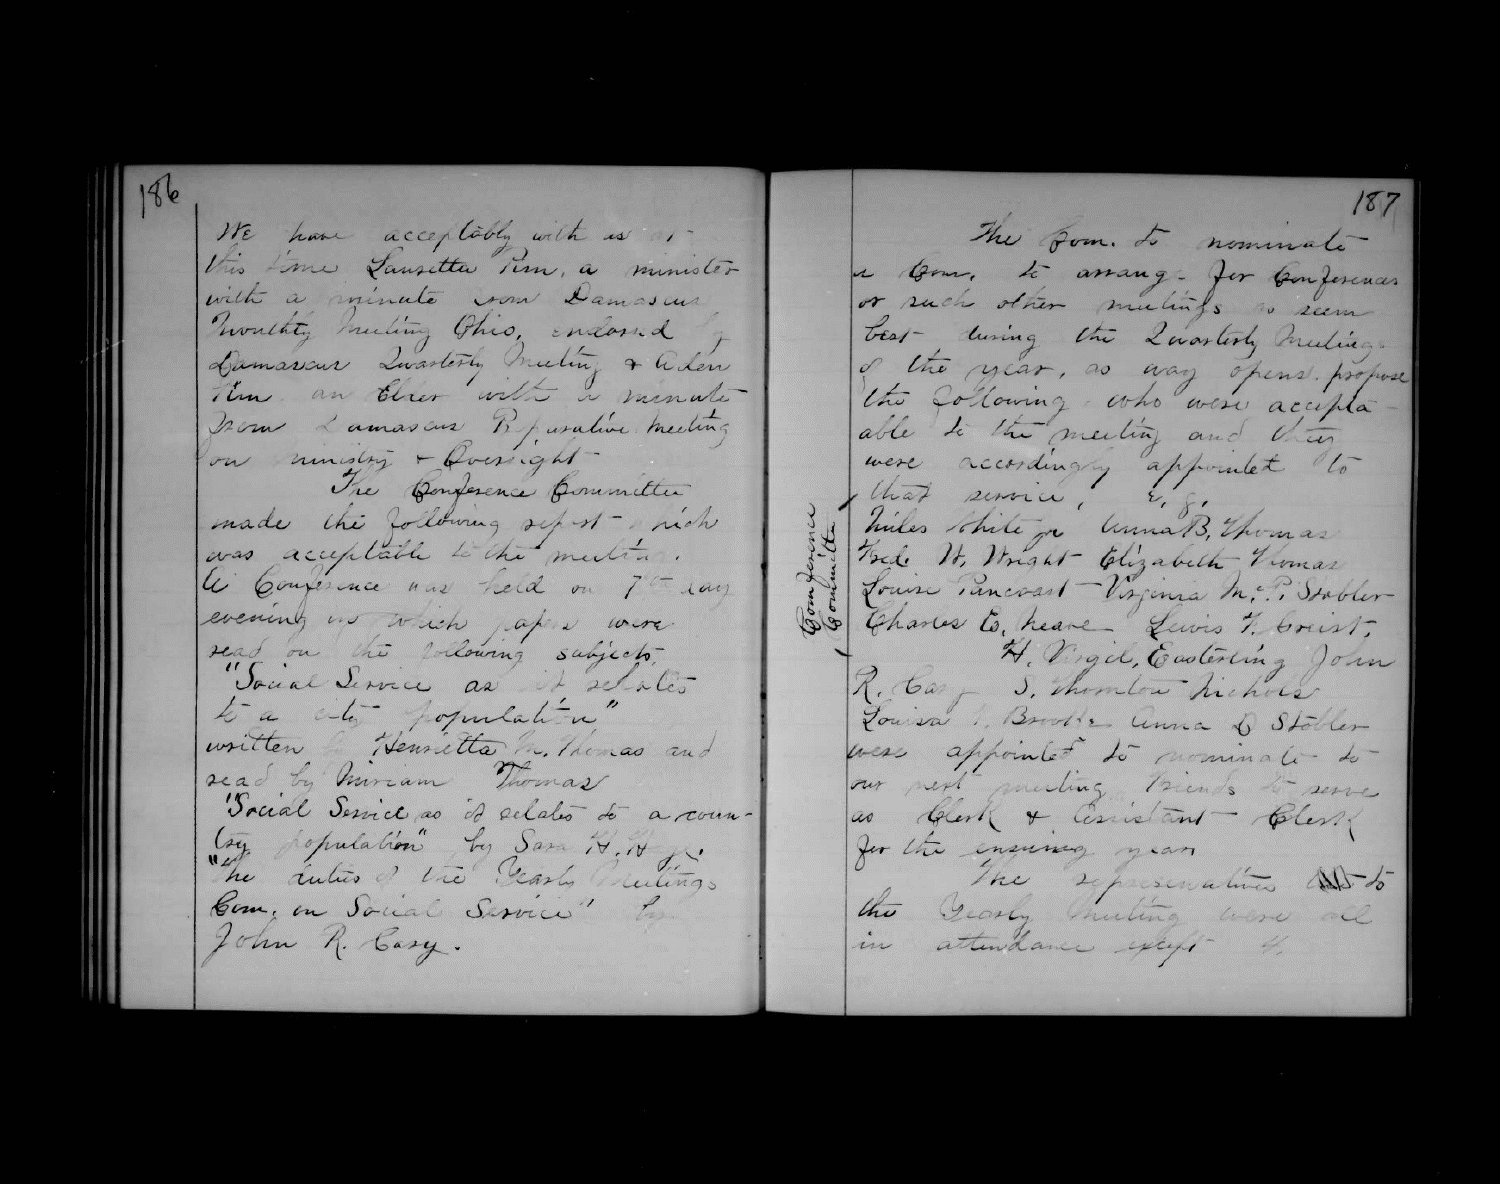 186
We have acceptably with us at
this time Lauretta Pim, a minister
with a minute from Damascus
Monthly Meeting Ohio, endorsed by
Damascus Quarterly Meeting & Aden
Pim an Elder with a minute
from Damascus Preparative Meeting
on ministry & Oversight
The Conference Committee
made the following report which
was acceptable to the meeting.
A Conference was held on 7th day
evening in which papers were
read on the following subjects.
"Social Service as it relates
to a city population"
written by Henrietta M. Thomas and
read by Miriam Thomas
"Social Service as it relates to a coun-
try population" by Sara H. H
"The duties of the Yearly Meetings
Com. on Social Service" by
John R. Cary.
187
The Com. to nominate
a Com. to arrange for Conferences
or such other meetings as seem
best during the Quarterly Meetings
of the year, as way opens. propose
the following who were accepta-
able to the meeting and they
were accordingly appointed to
that service, e, g,
Conference
Committee
Miles White Jr Anna B. Thomas
Fred. W. Wright Elizabeth Thomas
Louise Pancoast Virginia M. P. Stabler
Charles E. Neave Lewis T. Crist.
H. Virgil, Easterling John
R. Cary S. Thornton Nichols
Louisa P. Brooke Anna D Stabler
were appointed to nominate to
our next meeting Friends to serve
as Clerk & Assistant Clerk
for the ensuing year
The representatives to
the Yearly Meeting were all
in attendance except 4.